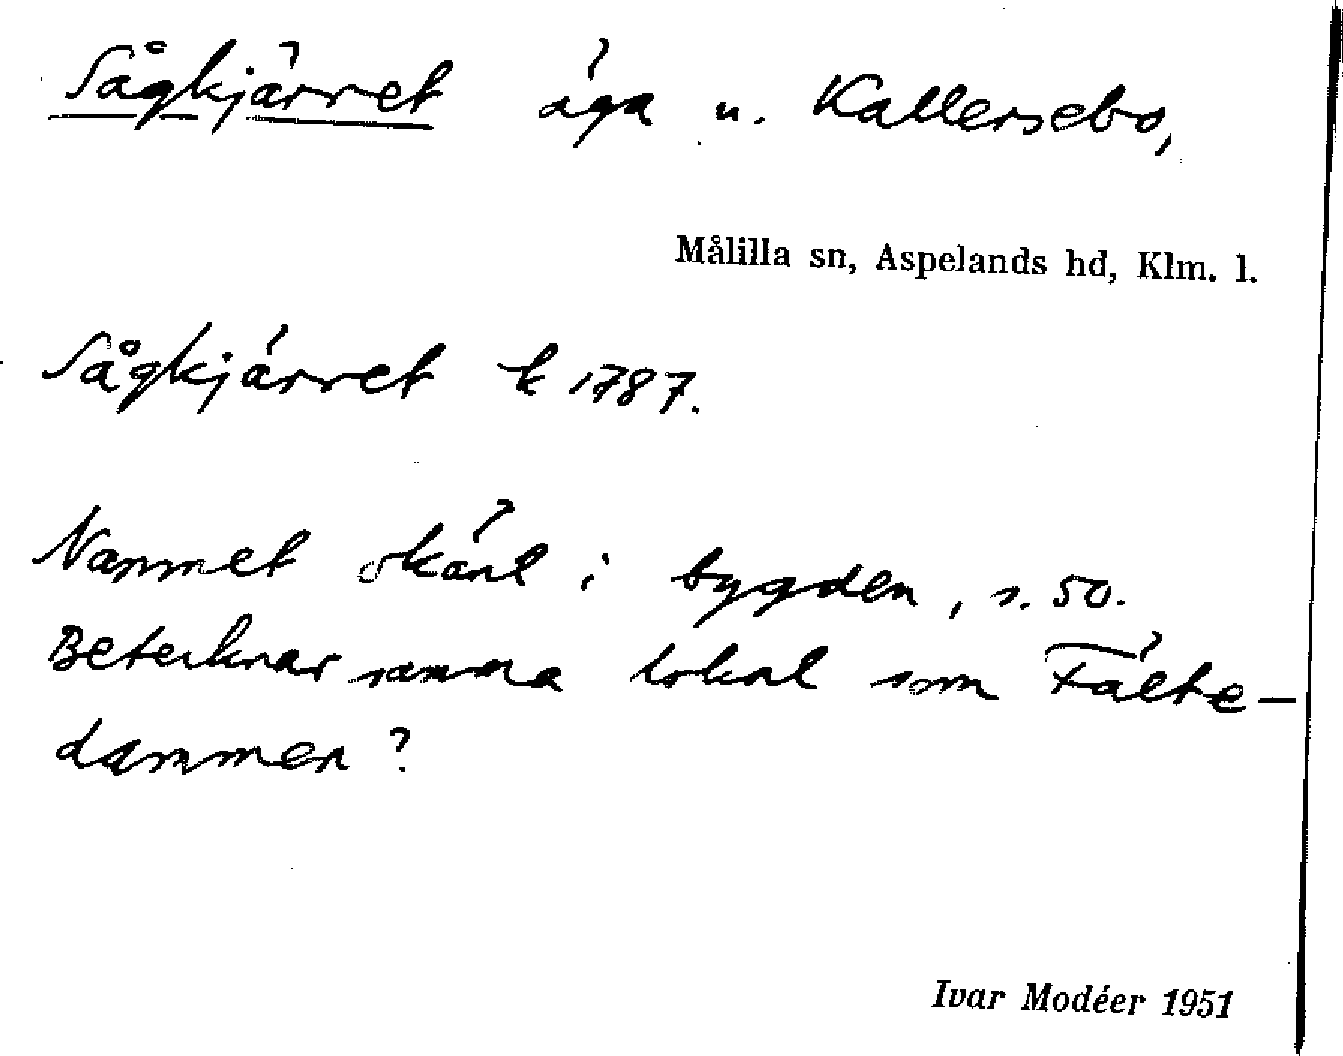 Sågkjärret äga u. Kallersebo,
Målilla sn, Aspelands hd, Klm. l.
Sågkjärret k 1787.
Namnet okänt i bygden, s. 50.
Betecknar samma lokal som Fälte-
dammen?
Ivar Modéer 1951